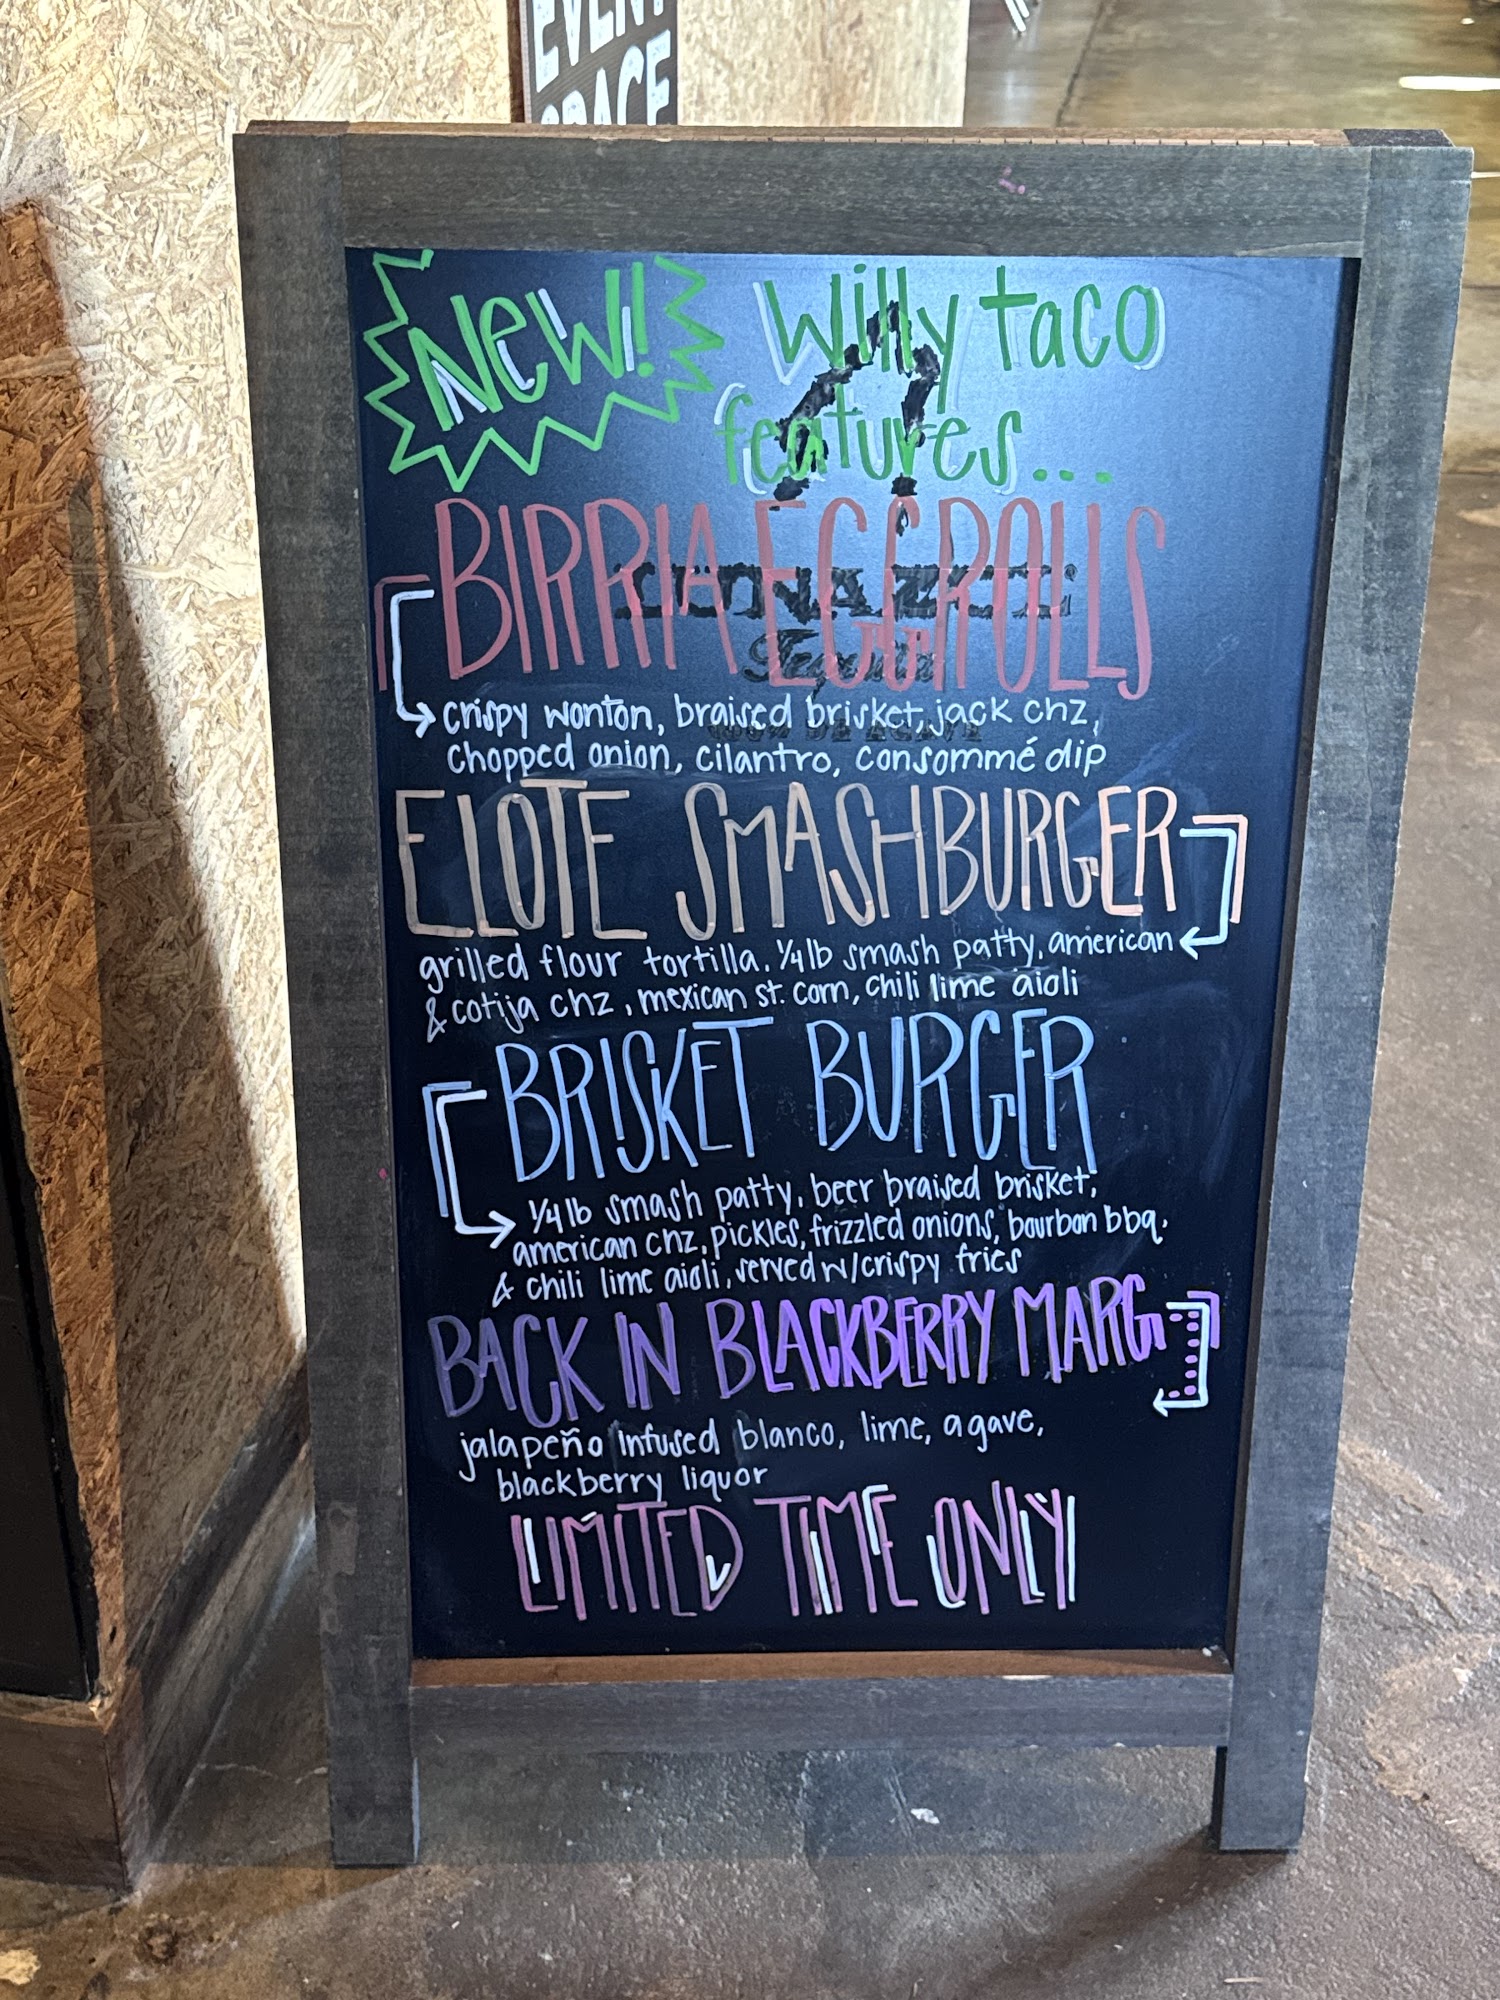 EVENT
SPACE
NEW! Willy taco
features...
BIRRIA EGGROLLS
crispy wonton, braised brisket, jack chz,
chopped onion, cilantro, consommé dip
ELOTE SMASHBURGER
grilled flour tortilla, 1/4 lb smash patty, american
& cotija chz, mexican st. corn, chili lime aioli
BRISKET BURGER
1/4 lb smash patty, beer braised brisket,
american chz, pickles, frizzled onions, bourbon bbq,
& chili lime aioli, served w/crispy fries
BACK IN BLACKBERRY MARG
jalapeño infused blanco, lime, agave,
blackberry liquor
LIMITED TIME ONLY